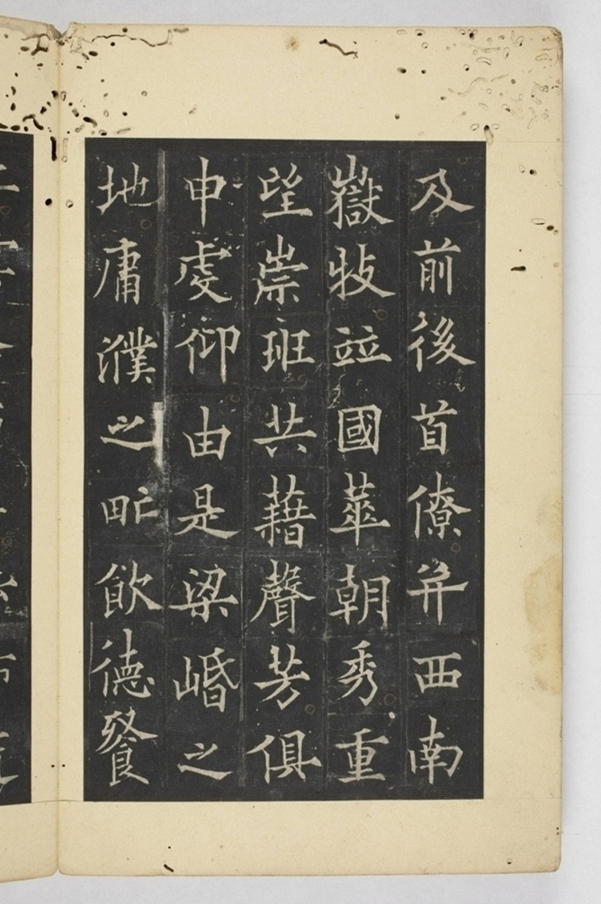 及前後首僚并西南
嶽牧竝國華朝秀重
望崇班共藉聲芳俱
申虔仰由是梁㟭之
地庸濮之甿飲德餐